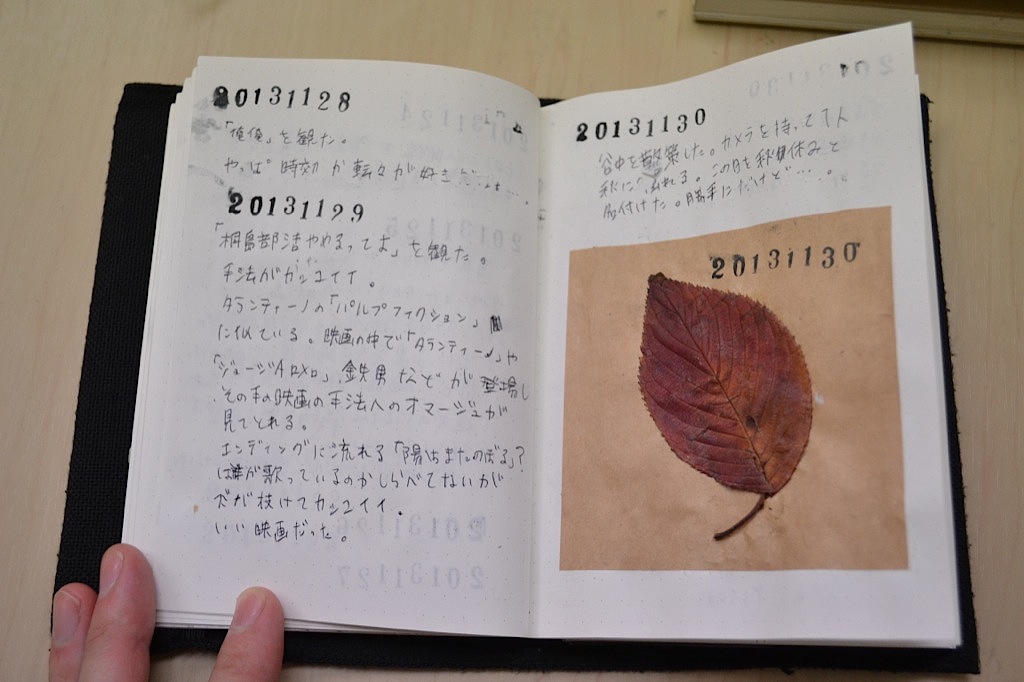 20131128
「俺俺」を観た。
やっぱ 時効 が 転々が好き
20131129
「桐島部活やめるってよ」を観た。
手法がカッコイイ。
タランティーノの「パルプフィクション」
に似ている。映画の中で「タランティーノ」や
「ジョージAロメロ」、鉄男 などが 登場し
その手の映画の手法へのオマージュが
見てとれる。
エンディングに流れる「陽はまたのぼる」?
は誰が歌っているのかしらべてないが
ズが抜けてカッコイイ。
いい映画だった。
20131130
谷中を散策した。カメラを持って1人
秋にふれる。この日を秋休みと
名付けた。勝手にだけど…。
20131130